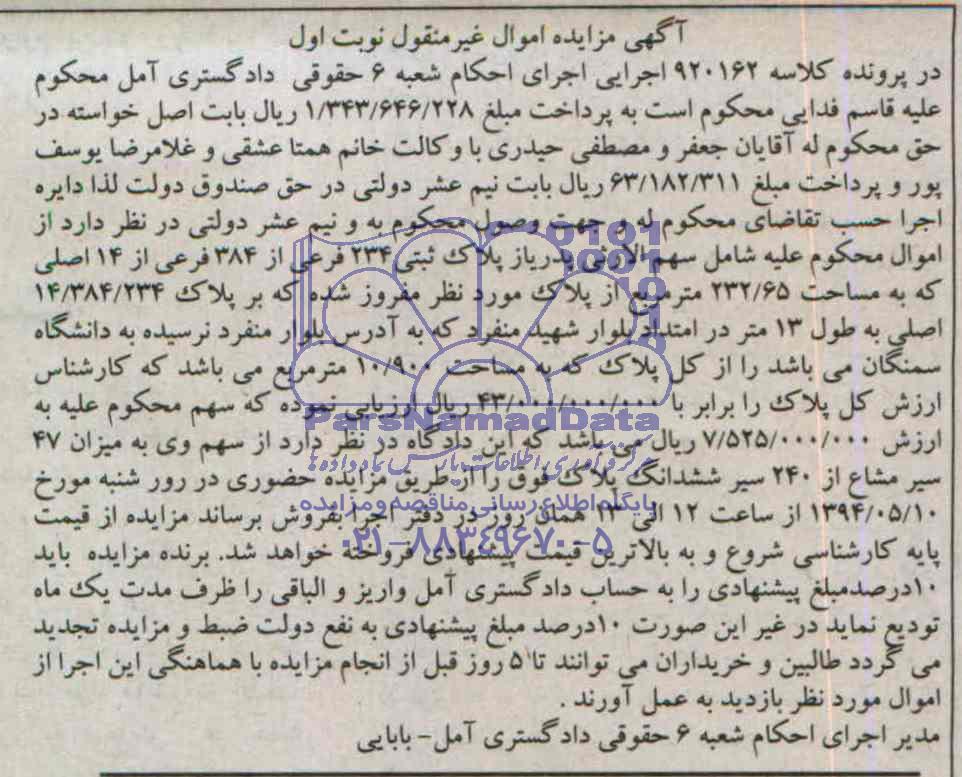 آگهی مزایده اموال غیرمنقول نوبت اول
در پرونده کلاسه ۹۲۰۱۶۲ اجرایی اجرای احکام شعبه ۶ حقوقی دادگستری آمل محکوم
علیه قاسم فدایی محکوم است به پرداخت مبلغ ۱/۳۴۳/۶۴۶/۲۲۸ ریال بابت اصل خواسته در
حق محکوم له آقایان جعفر و مصطفی حیدری با وکالت خانم همتا عشقی و غلامرضا یوسف
پور و پرداخت مبلغ ۶۳/۱۸۲/۳۱۱ ریال بابت نیم عشر دولتی در حق صندوق دولت لذا دایره
اجرا حسب تقاضای محکوم له و جهت وصول محکوم به و نیم عشر دولتی در نظر دارد از
اموال محکوم علیه شامل سهم الارثی پدریاز پلاک ثبتی ۲۳۴ فرعی از ۳۸۴ فرعی از ۱۴ اصلی
که به مساحت ۲۳۲/۶۵ مترمربع از پلاک مورد نظر مفروز شده که بر پلاک ۱۴/۳۸۴/۲۳۴
اصلی به طول ۱۳ متر در امتداد بلوار شهید منفرد که به آدرس بلوار منفرد نرسیده به دانشگاه
سمنگان می باشد را از کل پلاک که به مساحت ۱۰/۹۰۰ مترمربع می باشد که کارشناس
ارزش کل پلاک را برابر با ۴۳/۰۰۰/۰۰۰/۰۰۰ ریال ارزیابی نموده که سهم محکوم علیه به
ارزش ۷/۵۲۵/۰۰۰/۰۰۰ ریال می باشد که این دادگاه در نظر دارد از سهم وی به میزان ۴۷
سیر مشاع از ۲۴۰ سیر ششدانگ پلاک فوق را از طریق مزایده حضوری در روز شنبه مورخ
۱۳۹۴/۰۵/۱۰ از ساعت ۱۲ الی ۱۳ همان روز در دفتر اجرا بفروش برساند مزایده از قیمت
پایه کارشناسی شروع و به بالاترین قیمت پیشنهادی فروخته خواهد شد. برنده مزایده باید
۱۰درصدمبلغ پیشنهادی را به حساب دادگستری آمل واریز و الباقی را ظرف مدت یک ماه
تودیع نماید در غیر این صورت ۱۰درصد مبلغ پیشنهادی به نفع دولت ضبط و مزایده تجدید
می گردد طالبین و خریداران می توانند تا ۵ روز قبل از انجام مزایده با هماهنگی این اجرا از
اموال مورد نظر بازدید به عمل آورند .
مدیر اجرای احکام شعبه ۶ حقوقی دادگستری آمل- بابایی
ParsNamadData
مرکز فرآوری اطلاعات پارس نماد داده ها
پایگاه اطلاع رسانی مناقصه و مزایده
۰۲۱-۸۸۳۴۹۶۷۰-۵